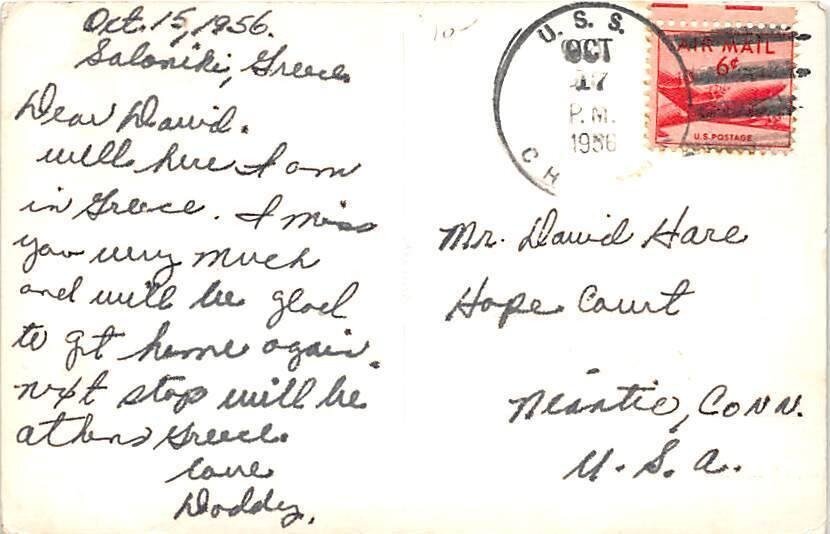 Oct. 15, 1956.
Saloniki, Greece.
Dear David.
well here I am
in Greece. I miss
you very much
and will be glad
to get home again.
next stop will be
athens Greece.
Love
Daddy.
U. S. S.
OCT
17
P. M.
1956
CH
AIR MAIL
6¢
U.S. POSTAGE
Mr. David Hare
Hope Court
Niantic, CONN.
U. S. A.